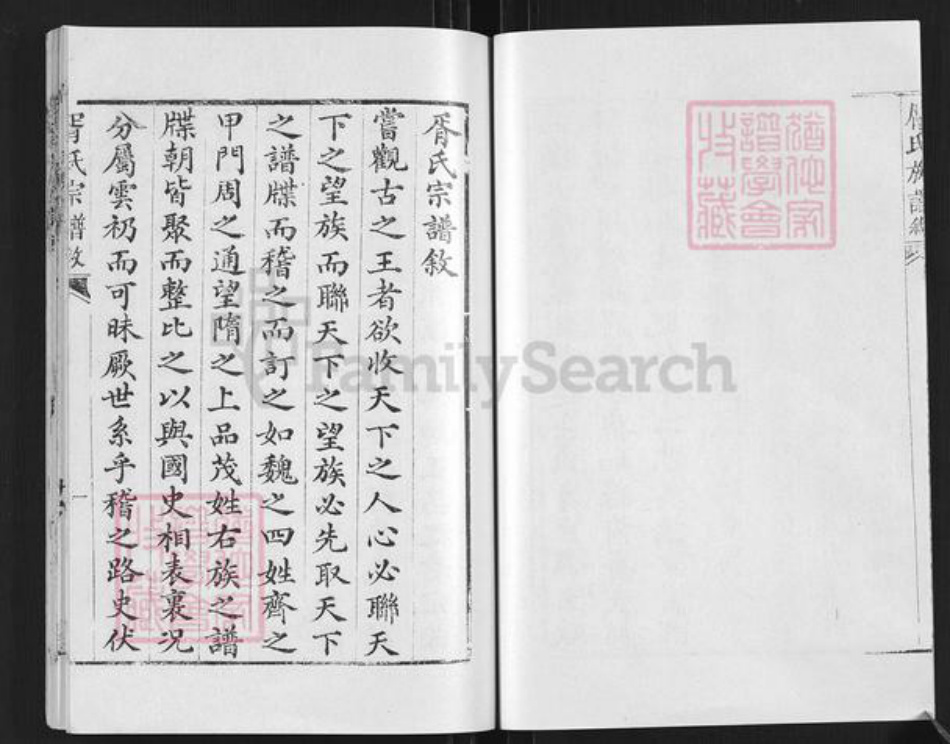 胥氏宗譜敘
嘗觀古之王者欲收天下之人心必聯天
下之望族而聯天下之望族必先取天下
之譜牒而稽之而訂之如魏之四姓齊之
甲門周之通望隋之上品茂姓右族之譜
牒朝皆聚而整比之以與國史相表裏况
分屬雲礽而可昧厥世系乎稽之路史伏
胥氏宗譜敘
一
氏族譜
猶他家
譜學會
收藏
FamilySearch